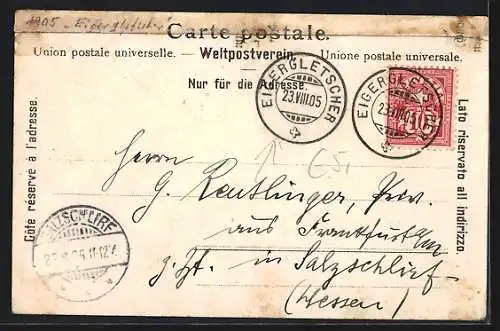 1905 - Eigergletscher
Carte postale.
Union postale universelle. — Weltpostverein. — Unione postale universale.
Nur für die Adresse.
Côté réservé à l'adresse.
Lato riservato all indirizzo.
EIGERGLETSCHER
23.VIII.05
EIGERGLETSCHER
23.VIII.05
10
65,
Herrn
G. Reutlinger, Priv.
aus Frankfurt a/M
z. Zt. in Salzschlirf
(Hessen)
SALZSCHLIRF